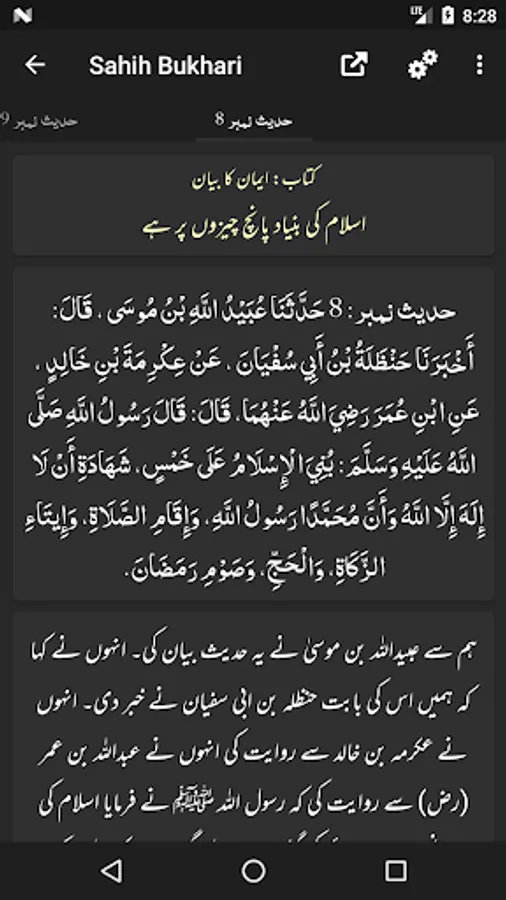 LTE 8:28
Sahih Bukhari
حدیث نمبر 8
حدیث نمبر 9
کتاب: ایمان کا بیان
اسلام کی بنیاد پانچ چیزوں پر ہے
حدیث نمبر: 8 حَدَّثَنَا عُبَيْدُ اللَّهِ بْنُ مُوسَى ، قَالَ:
أَخْبَرَنَا حَنْظَلَةُ بْنُ أَبِي سُفْيَانَ ، عَنْ عِكْرِمَةَ بْنِ خَالِدٍ ،
عَنِ ابْنِ عُمَرَ رَضِيَ اللَّهُ عَنْهُمَا، قَالَ: قَالَ رَسُولُ اللَّهِ صَلَّى
اللَّهُ عَلَيْهِ وَسَلَّمَ: بُنِيَ الْإِسْلَامُ عَلَى خَمْسٍ، شَهَادَةِ أَنْ لَا
إِلَهَ إِلَّا اللَّهُ وَأَنَّ مُحَمَّدًا رَسُولُ اللَّهِ، وَإِقَامِ الصَّلَاةِ، وَإِيتَاءِ
الزَّكَاةِ، وَالْحَجِّ، وَصَوْمِ رَمَضَانَ.
ہم سے عبیداللہ بن موسیٰ نے یہ حدیث بیان کی۔ انہوں نے کہا
کہ ہمیں اس کی بابت حنظلہ بن ابی سفیان نے خبر دی۔ انہوں
نے عکرمہ بن خالد سے روایت کی انہوں نے عبداللہ بن عمر
(رض) سے روایت کی کہ رسول اللہ ﷺ نے فرمایا اسلام کی